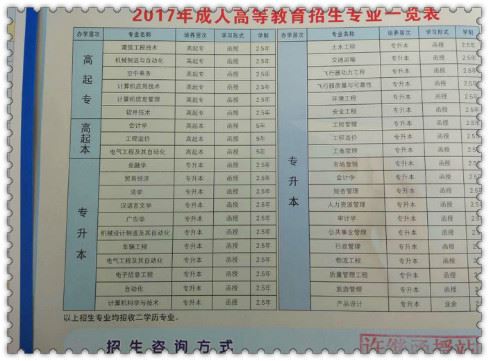 2017年成人高等教育招生专业一览表
办学层次 专业名称 培养层次 学习形式 学制 办学层次 专业名称 培养层次 学习形式 学制
高起专
建筑工程技术 高起专 函授 2.5年
机械制造与自动化 高起专 函授 2.5年
空中乘务 高起专 函授 2.5年
计算机应用技术 高起专 函授 2.5年
计算机信息管理 高起专 函授 2.5年
软件技术 高起专 函授 2.5年
高起本
会计学 高起本 函授 5年
工程造价 高起本 函授 5年
电气工程及其自动化 高起本 函授 5年
专升本
金融学 专升本 函授 2.5年
贸易经济 专升本 函授 2.5年
法学 专升本 函授 2.5年
汉语言文学 专升本 函授 2.5年
广告学 专升本 函授 2.5年
机械设计制造及其自动化 专升本 函授 2.5年
车辆工程 专升本 函授 2.5年
电气工程及其自动化 专升本 函授 2.5年
电子信息工程 专升本 函授 2.5年
自动化 专升本 函授 2.5年
计算机科学与技术 专升本 函授 2.5年
专升本
土木工程 专升本 函授 2.5年
交通运输 专升本 函授 2.5年
飞行器动力工程 专升本 函授 2.5年
飞行器质量与可靠性 专升本 函授 2.5年
环境工程 专升本 函授 2.5年
安全工程 专升本 函授 2.5年
工程管理 专升本 函授 2.5年
工程造价 专升本 函授 2.5年
工商管理 专升本 函授 2.5年
市场营销 专升本 函授 2.5年
会计学 专升本 函授 2.5年
财务管理 专升本 函授 2.5年
人力资源管理 专升本 函授 2.5年
审计学 专升本 函授 2.5年
公共事业管理 专升本 函授 2.5年
行政管理 专升本 函授 2.5年
物流工程 专升本 函授 2.5年
质量管理工程 专升本 函授 2.5年
旅游管理 专升本 函授 2.5年
产品设计 专升本 业余 2.5年
以上招生专业均招收二学历专业.
招生咨询方式